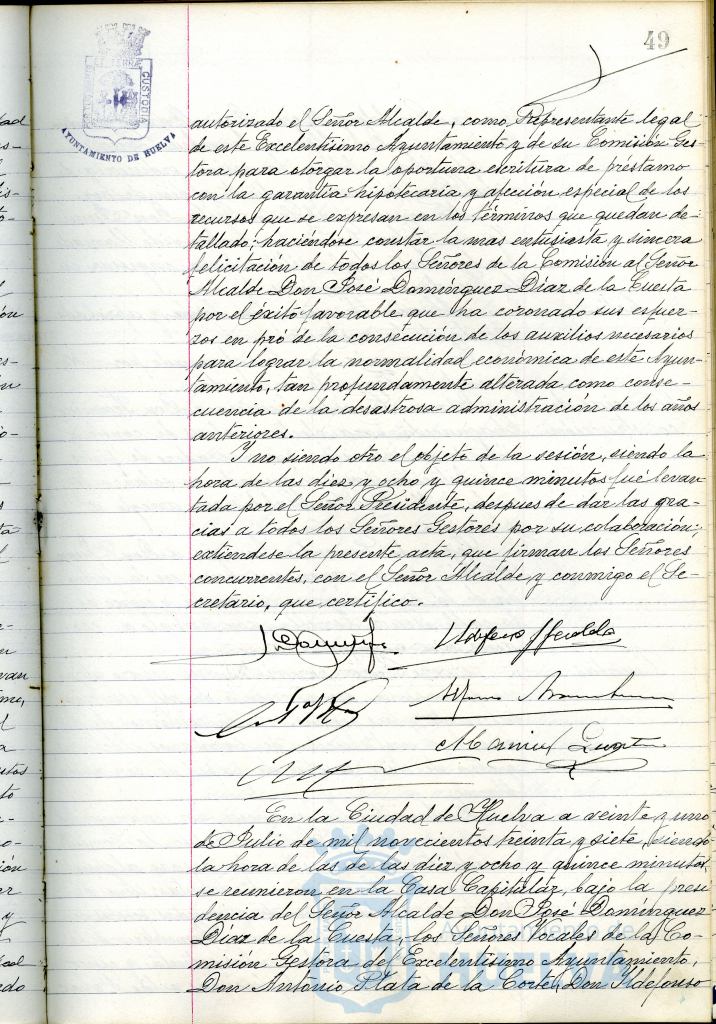 49
CUSTODIA
AYUNTAMIENTO DE HUELVA
autorizado el Señor Alcalde, como Representante legal
de este Excelentísimo Ayuntamiento y de su Comisión Ges-
tora para otorgar la oportuna escritura de préstamo
con la garantía hipotecaria y afección especial de los
recursos que se expresan en los términos que quedan de-
tallado; haciéndose constar la mas entusiasta y sincera
felicitación de todos los Señores de la Comisión al Señor
Alcalde Don José Domínguez Díaz de la Cuesta
por el éxito favorable que ha coronado sus esfuer-
zos en pró de la consecución de los auxilios necesarios
para lograr la normalidad económica de este Ayun-
tamiento, tan profundamente alterada como conse-
cuencia de la desastrosa administración de los años
anteriores.
Y no siendo otro el objeto de la sesión, siendo la
hora de las diez y ocho y quince minutos fué levan-
tada por el Señor Presidente, despues de dar las gra-
cias a todos los Señores Gestores por su colaboración;
extiéndese la presente acta, que firman los Señores
concurrentes, con el Señor Alcalde y conmigo el Se-
cretario, que certifico.
En la Ciudad de Huelva a veinte y uno
de Julio de mil novecientos treinta y siete, siendo
la hora de las de las diez y ocho y quince minutos,
se reunieron en la Casa Capitular, bajo la presi
dencia del Señor Alcalde Don José Domínguez
Díaz de la Cuesta, los Señores Vocales de la Co-
misión Gestora del Excelentísimo Ayuntamiento,
Don Antonio Plata de la Corte, Don Ildefonso